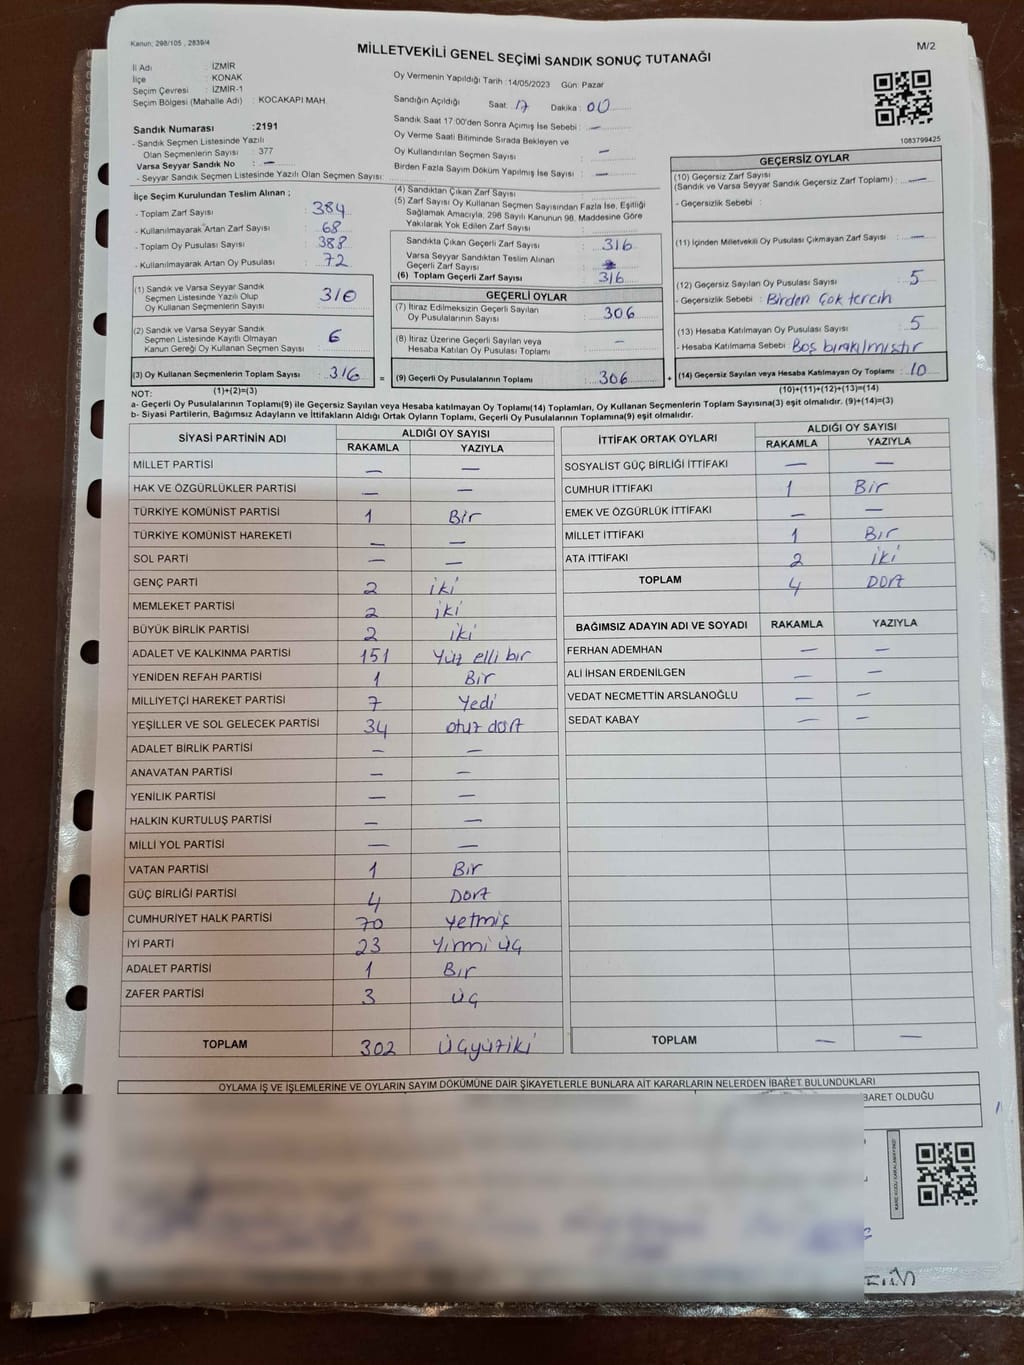 Kanun: 298/105 , 2839/4
MİLLETVEKİLİ GENEL SEÇİMİ SANDIK SONUÇ TUTANAĞI
M/2
İl Adı : İZMİR
İlçe : KONAK
Seçim Çevresi : İZMİR-1
Seçim Bölgesi (Mahalle Adı) : KOCAKAPI MAH.
Oy Vermenin Yapıldığı Tarih : 14/05/2023 Gün: Pazar
Sandığın Açıldığı Saat: 17 Dakika: 00
Sandık Saat 17:00'den Sonra Açımış İse Sebebi : —
Oy Verme Saati Bitiminde Sırada Bekleyen ve
Oy Kullandırılan Seçmen Sayısı : —
Birden Fazla Sayım Döküm Yapılmış İse Sayısı : —
1083799425
Sandık Numarası :2191
- Sandık Seçmen Listesinde Yazılı
Olan Seçmenlerin Sayısı : 377
Varsa Seyyar Sandık No : —
- Seyyar Sandık Seçmen Listesinde Yazılı Olan Seçmen Sayısı:
İlçe Seçim Kurulundan Teslim Alınan ;
- Toplam Zarf Sayısı : 384
- Kullanılmayarak Artan Zarf Sayısı : 68
- Toplam Oy Pusulası Sayısı : 388
- Kullanılmayarak Artan Oy Pusulası : 72
(1) Sandık ve Varsa Seyyar Sandık
Seçmen Listesinde Yazılı Olup
Oy Kullanan Seçmenlerin Sayısı : 310
(2) Sandık ve Varsa Seyyar Sandık
Seçmen Listesinde Kayıtlı Olmayan
Kanun Gereği Oy Kullanan Seçmen Sayısı : 6
(3) Oy Kullanan Seçmenlerin Toplam Sayısı : 316
(1)+(2)=(3)
(4) Sandıktan Çıkan Zarf Sayısı :
(5) Zarf Sayısı Oy Kullanan Seçmen Sayısından Fazla İse, Eşitliği
Sağlamak Amacıyla, 298 Sayılı Kanunun 98. Maddesine Göre
Yakılarak Yok Edilen Zarf Sayısı :
Sandıkta Çıkan Geçerli Zarf Sayısı : 316
Varsa Seyyar Sandıktan Teslim Alınan
Geçerli Zarf Sayısı :
(6) Toplam Geçerli Zarf Sayısı : 316
GEÇERLİ OYLAR
(7) İtiraz Edilmeksizin Geçerli Sayılan
Oy Pusulalarının Sayısı : 306
(8) İtiraz Üzerine Geçerli Sayılan veya
Hesaba Katılan Oy Pusulası Toplamı : —
= (9) Geçerli Oy Pusulalarının Toplamı : 306 +
GEÇERSİZ OYLAR
(10) Geçersiz Zarf Sayısı
(Sandık ve Varsa Seyyar Sandık Geçersiz Zarf Toplamı) : —
- Geçersizlik Sebebi :
(11) İçinden Milletvekili Oy Pusulası Çıkmayan Zarf Sayısı : —
(12) Geçersiz Sayılan Oy Pusulası Sayısı : 5
- Geçersizlik Sebebi : Birden Çok tercih
(13) Hesaba Katılmayan Oy Pusulası Sayısı : 5
- Hesaba Katılmama Sebebi : Boş bırakılmıştır
(14) Geçersiz Sayılan veya Hesaba Katılmayan Oy Toplamı : 10
(10)+(11)+(12)+(13)=(14)
NOT:
a- Geçerli Oy Pusulalarının Toplamı(9) ile Geçersiz Sayılan veya Hesaba katılmayan Oy Toplamı(14) Toplamları, Oy Kullanan Seçmenlerin Toplam Sayısına(3) eşit olmalıdır. (9)+(14)=(3)
b- Siyasi Partilerin, Bağımsız Adayların ve İttifakların Aldığı Ortak Oyların Toplamı, Geçerli Oy Pusulalarının Toplamına(9) eşit olmalıdır.
SİYASİ PARTİNİN ADI ALDIĞI OY SAYISI
RAKAMLA YAZIYLA
MİLLET PARTİSİ — —
HAK VE ÖZGÜRLÜKLER PARTİSİ — —
TÜRKİYE KOMÜNİST PARTİSİ 1 Bir
TÜRKİYE KOMÜNİST HAREKETİ — —
SOL PARTİ — —
GENÇ PARTİ 2 iki
MEMLEKET PARTİSİ 2 iki
BÜYÜK BİRLİK PARTİSİ 2 iki
ADALET VE KALKINMA PARTİSİ 151 Yüz elli bir
YENİDEN REFAH PARTİSİ 1 Bir
MİLLİYETÇİ HAREKET PARTİSİ 7 Yedi
YEŞİLLER VE SOL GELECEK PARTİSİ 34 otuz dört
ADALET BİRLİK PARTİSİ — —
ANAVATAN PARTİSİ — —
YENİLİK PARTİSİ — —
HALKIN KURTULUŞ PARTİSİ — —
MİLLİ YOL PARTİSİ — —
VATAN PARTİSİ 1 Bir
GÜÇ BİRLİĞİ PARTİSİ 4 Dört
CUMHURİYET HALK PARTİSİ 70 Yetmiş
İYİ PARTİ 23 Yirmi üç
ADALET PARTİSİ 1 Bir
ZAFER PARTİSİ 3 üç
TOPLAM 302 üçyüziki
İTTİFAK ORTAK OYLARI ALDIĞI OY SAYISI
RAKAMLA YAZIYLA
SOSYALİST GÜÇ BİRLİĞİ İTTİFAKI — —
CUMHUR İTTİFAKI 1 Bir
EMEK VE ÖZGÜRLÜK İTTİFAKI — —
MİLLET İTTİFAKI 1 Bir
ATA İTTİFAKI 2 iki
TOPLAM 4 Dört
BAĞIMSIZ ADAYIN ADI VE SOYADI RAKAMLA YAZIYLA
FERHAN ADEMHAN — —
ALİ İHSAN ERDENİLGEN — —
VEDAT NECMETTİN ARSLANOĞLU — —
SEDAT KABAY — —
TOPLAM — —
OYLAMA İŞ VE İŞLEMLERİNE VE OYLARIN SAYIM DÖKÜMÜNE DAİR ŞİKAYETLERLE BUNLARA AİT KARARLARIN NELERDEN İBARET BULUNDUKLARI
BARET OLDUĞU
KARE KODU KARALAMAYINIZ!